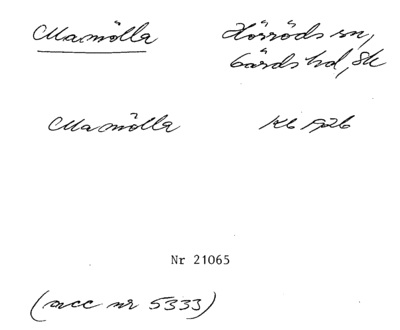 Mamölla Hörröds sn,
Gärds hd, Sk
Mamölla Kb 1926
Nr 21065
(acc nr 5333)